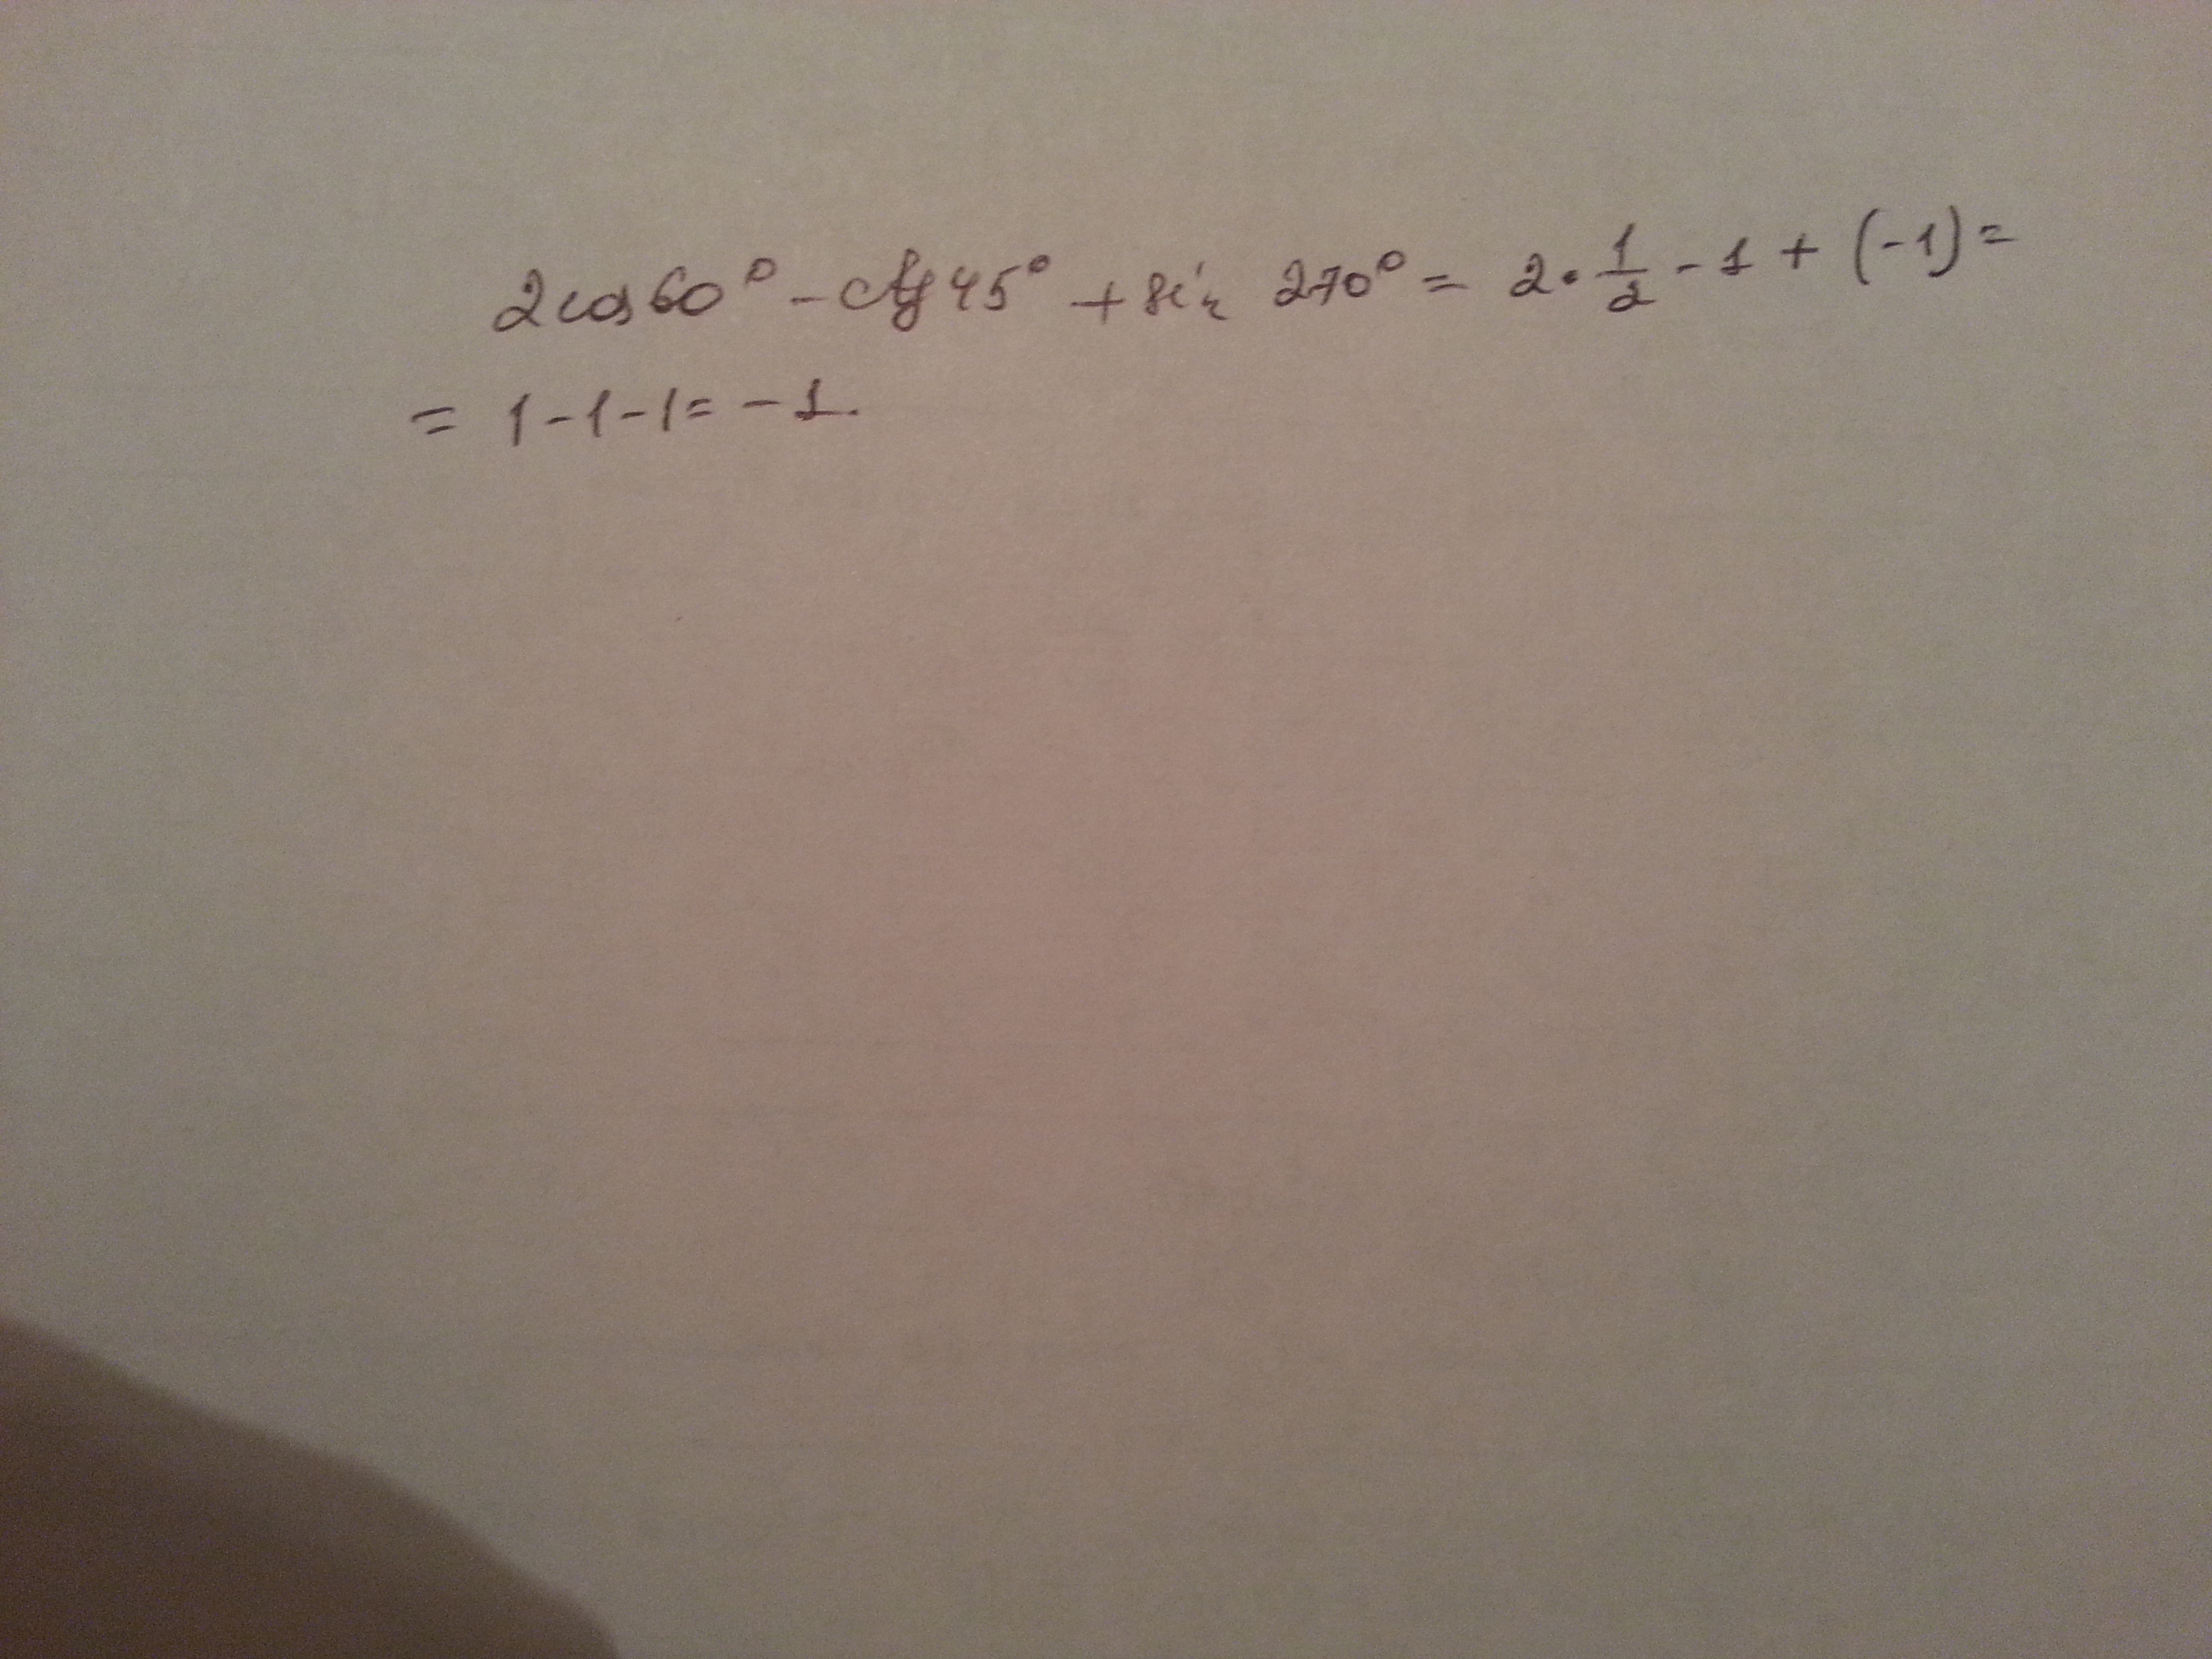 2cos60° - ctg45° + sin 270° = 2·1/2 - 1 + (-1) =
= 1-1-1 = -1.